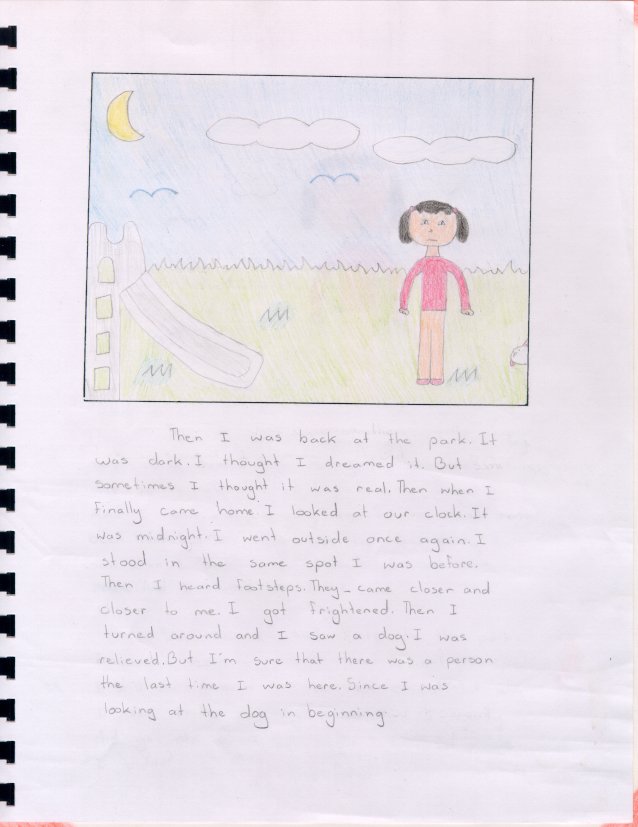 Then I was back at the park. It
was dark. I thought I dreamed it. But
sometimes I thought it was real. Then when I
finally came home. I looked at our clock. It
was midnight. I went outside once again. I
stood in the same spot I was before.
Then I heard footsteps. They came closer and
closer to me. I got frightened. Then I
turned around and I saw a dog. I was
relieved. But I'm sure that there was a person
the last time I was here. Since I was
looking at the dog in beginning.